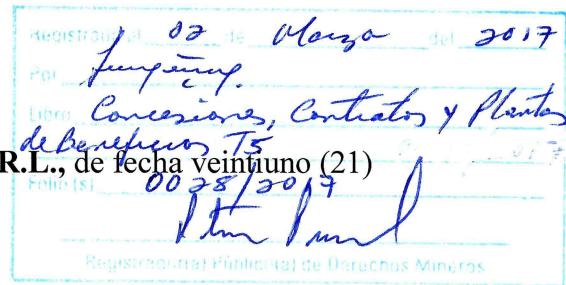 Registrado el 02 de Marzo del 2017
Por
Libro Concesiones, Contratos y Plantas
de Beneficios T5
R.L., de fecha veintiuno (21)
Folio (s) 0028/2017
Registrador(a) Público(a) de Derechos Mineros